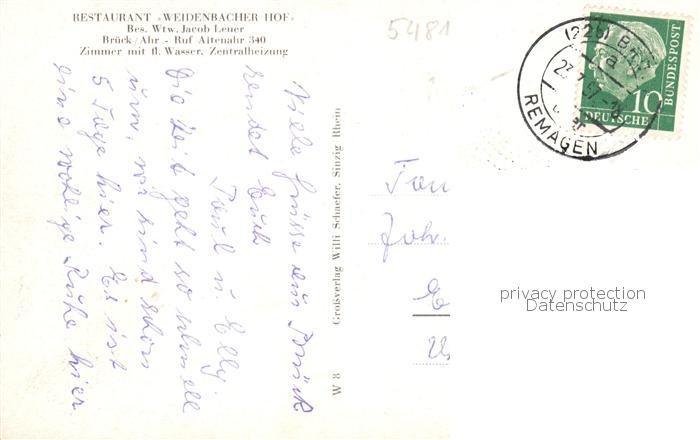 RESTAURANT »WEIDENBACHER HOF«
Bes. Wtw. Jacob Leuer
Brück/Ahr - Ruf Altenahr 340
Zimmer mit fl. Wasser, Zentralheizung
5481
Viele Grüsse aus Brück
sendet Euch
Paul u. Elly.
Die Zeit geht so schnell
rum, wir sind schon
5 Tage hier. Es ist
eine wohlige Ruhe hier
W 8 Großverlag Willi Schaefer, Sinzig Rhein
Fam
Joh.
(22b)
a
REMAGEN
10
DEUTSCHE
BUNDESPOST
privacy protection
Datenschutz